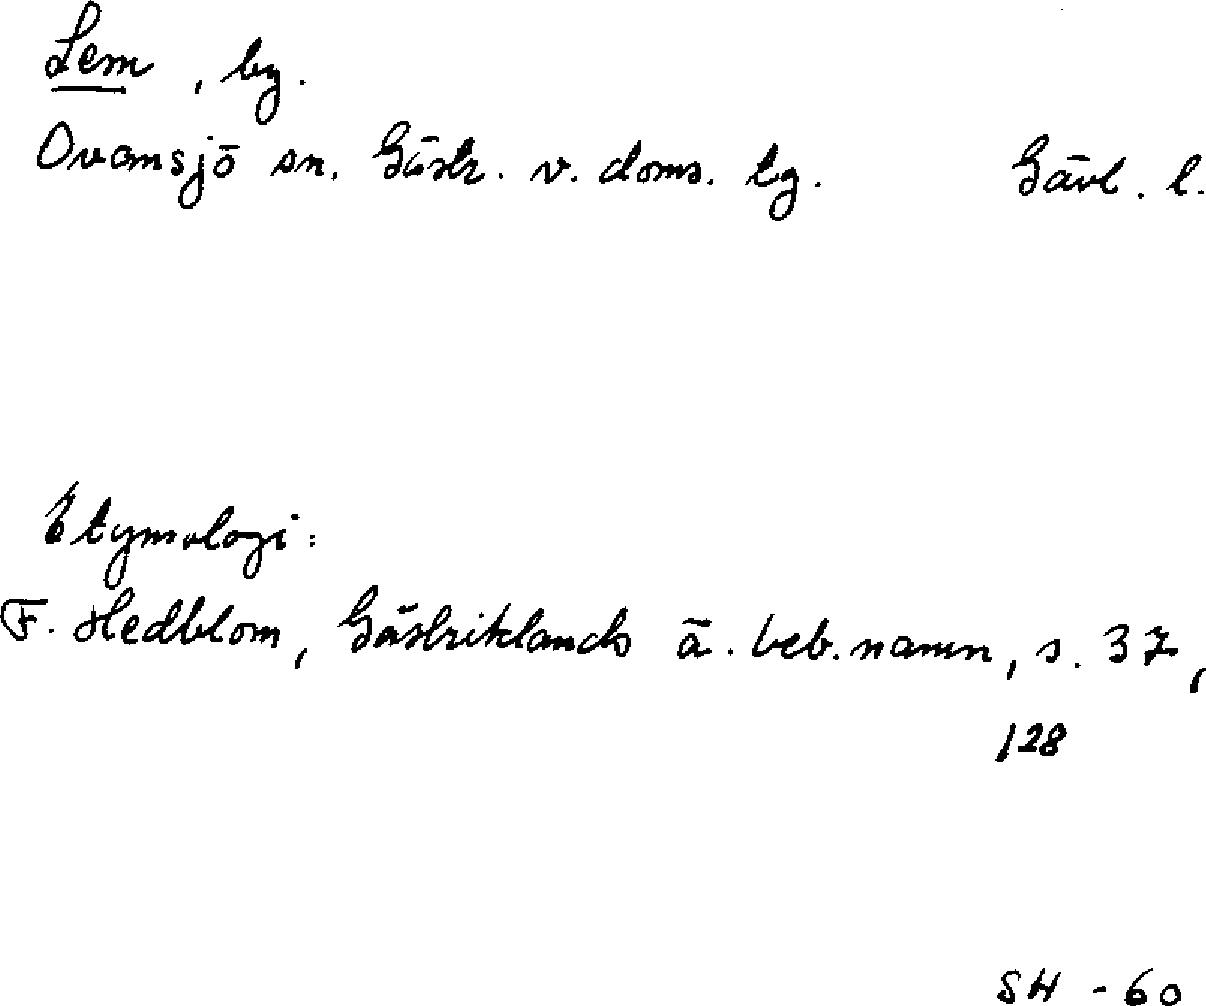 Lem, by.
Ovansjö sn. Gästr. v. doms. tg. Gävl. l.
Etymologi:
F. Hedblom, Gästriklands ä. beb.namn, s. 37,
128
SH - 60